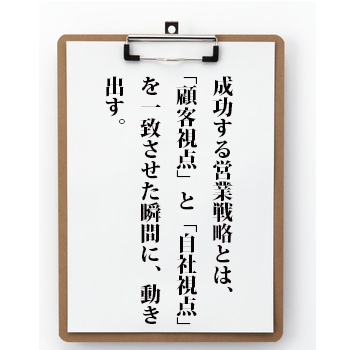 成功する営業戦略とは、
「顧客視点」と「自社視点」
を一致させた瞬間に、動き
出す。